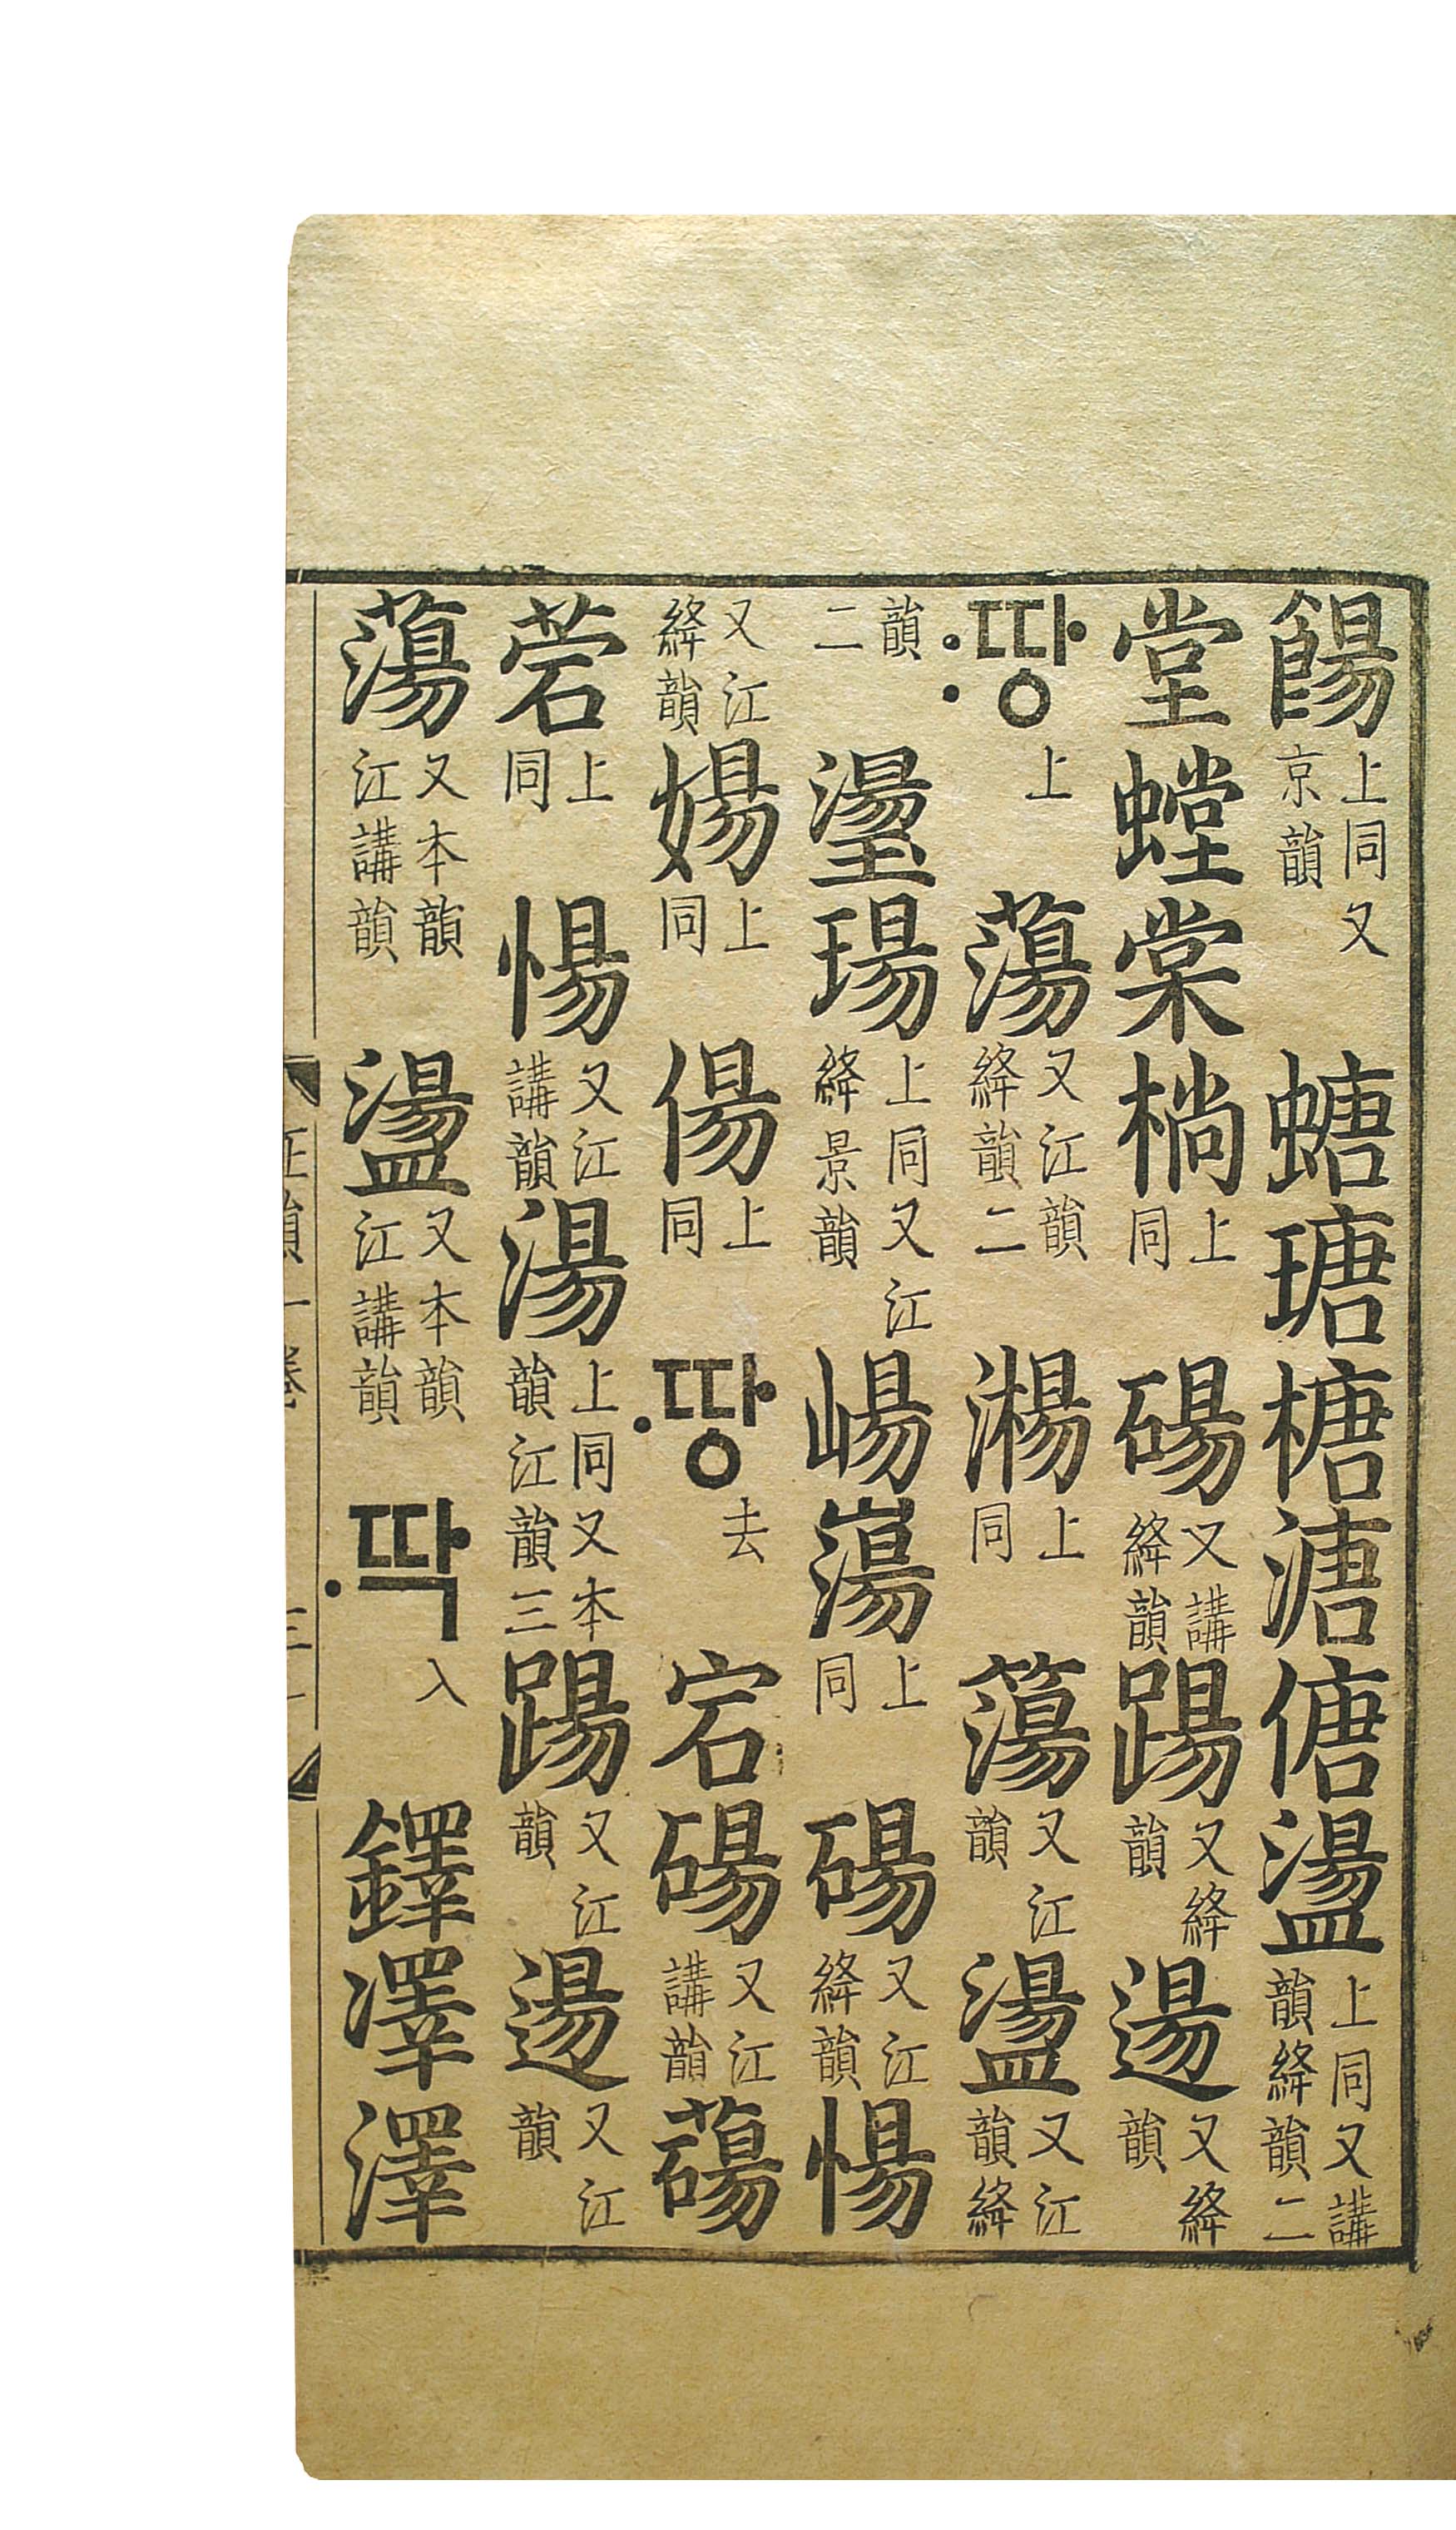 餳上同又京韻螗瑭榶溏傏盪上同又講韻絳韻二
堂螳棠上同碭又講絳韻踼又絳韻逿又絳韻
땅〯上蕩又江韻絳韻二上同簜又江韻盪又江韻絳
韻二璗瑒上同又江絳景韻崵上同碭又江絳韻愓
又江絳韻婸上同偒上同땅〮去宕碭又江講韻
菪上同愓又江講韻湯上同又本韻江韻三踼又江韻逿又江韻
蕩又本韻江講韻盪又本韻江講韻딱〮入鐸凙澤